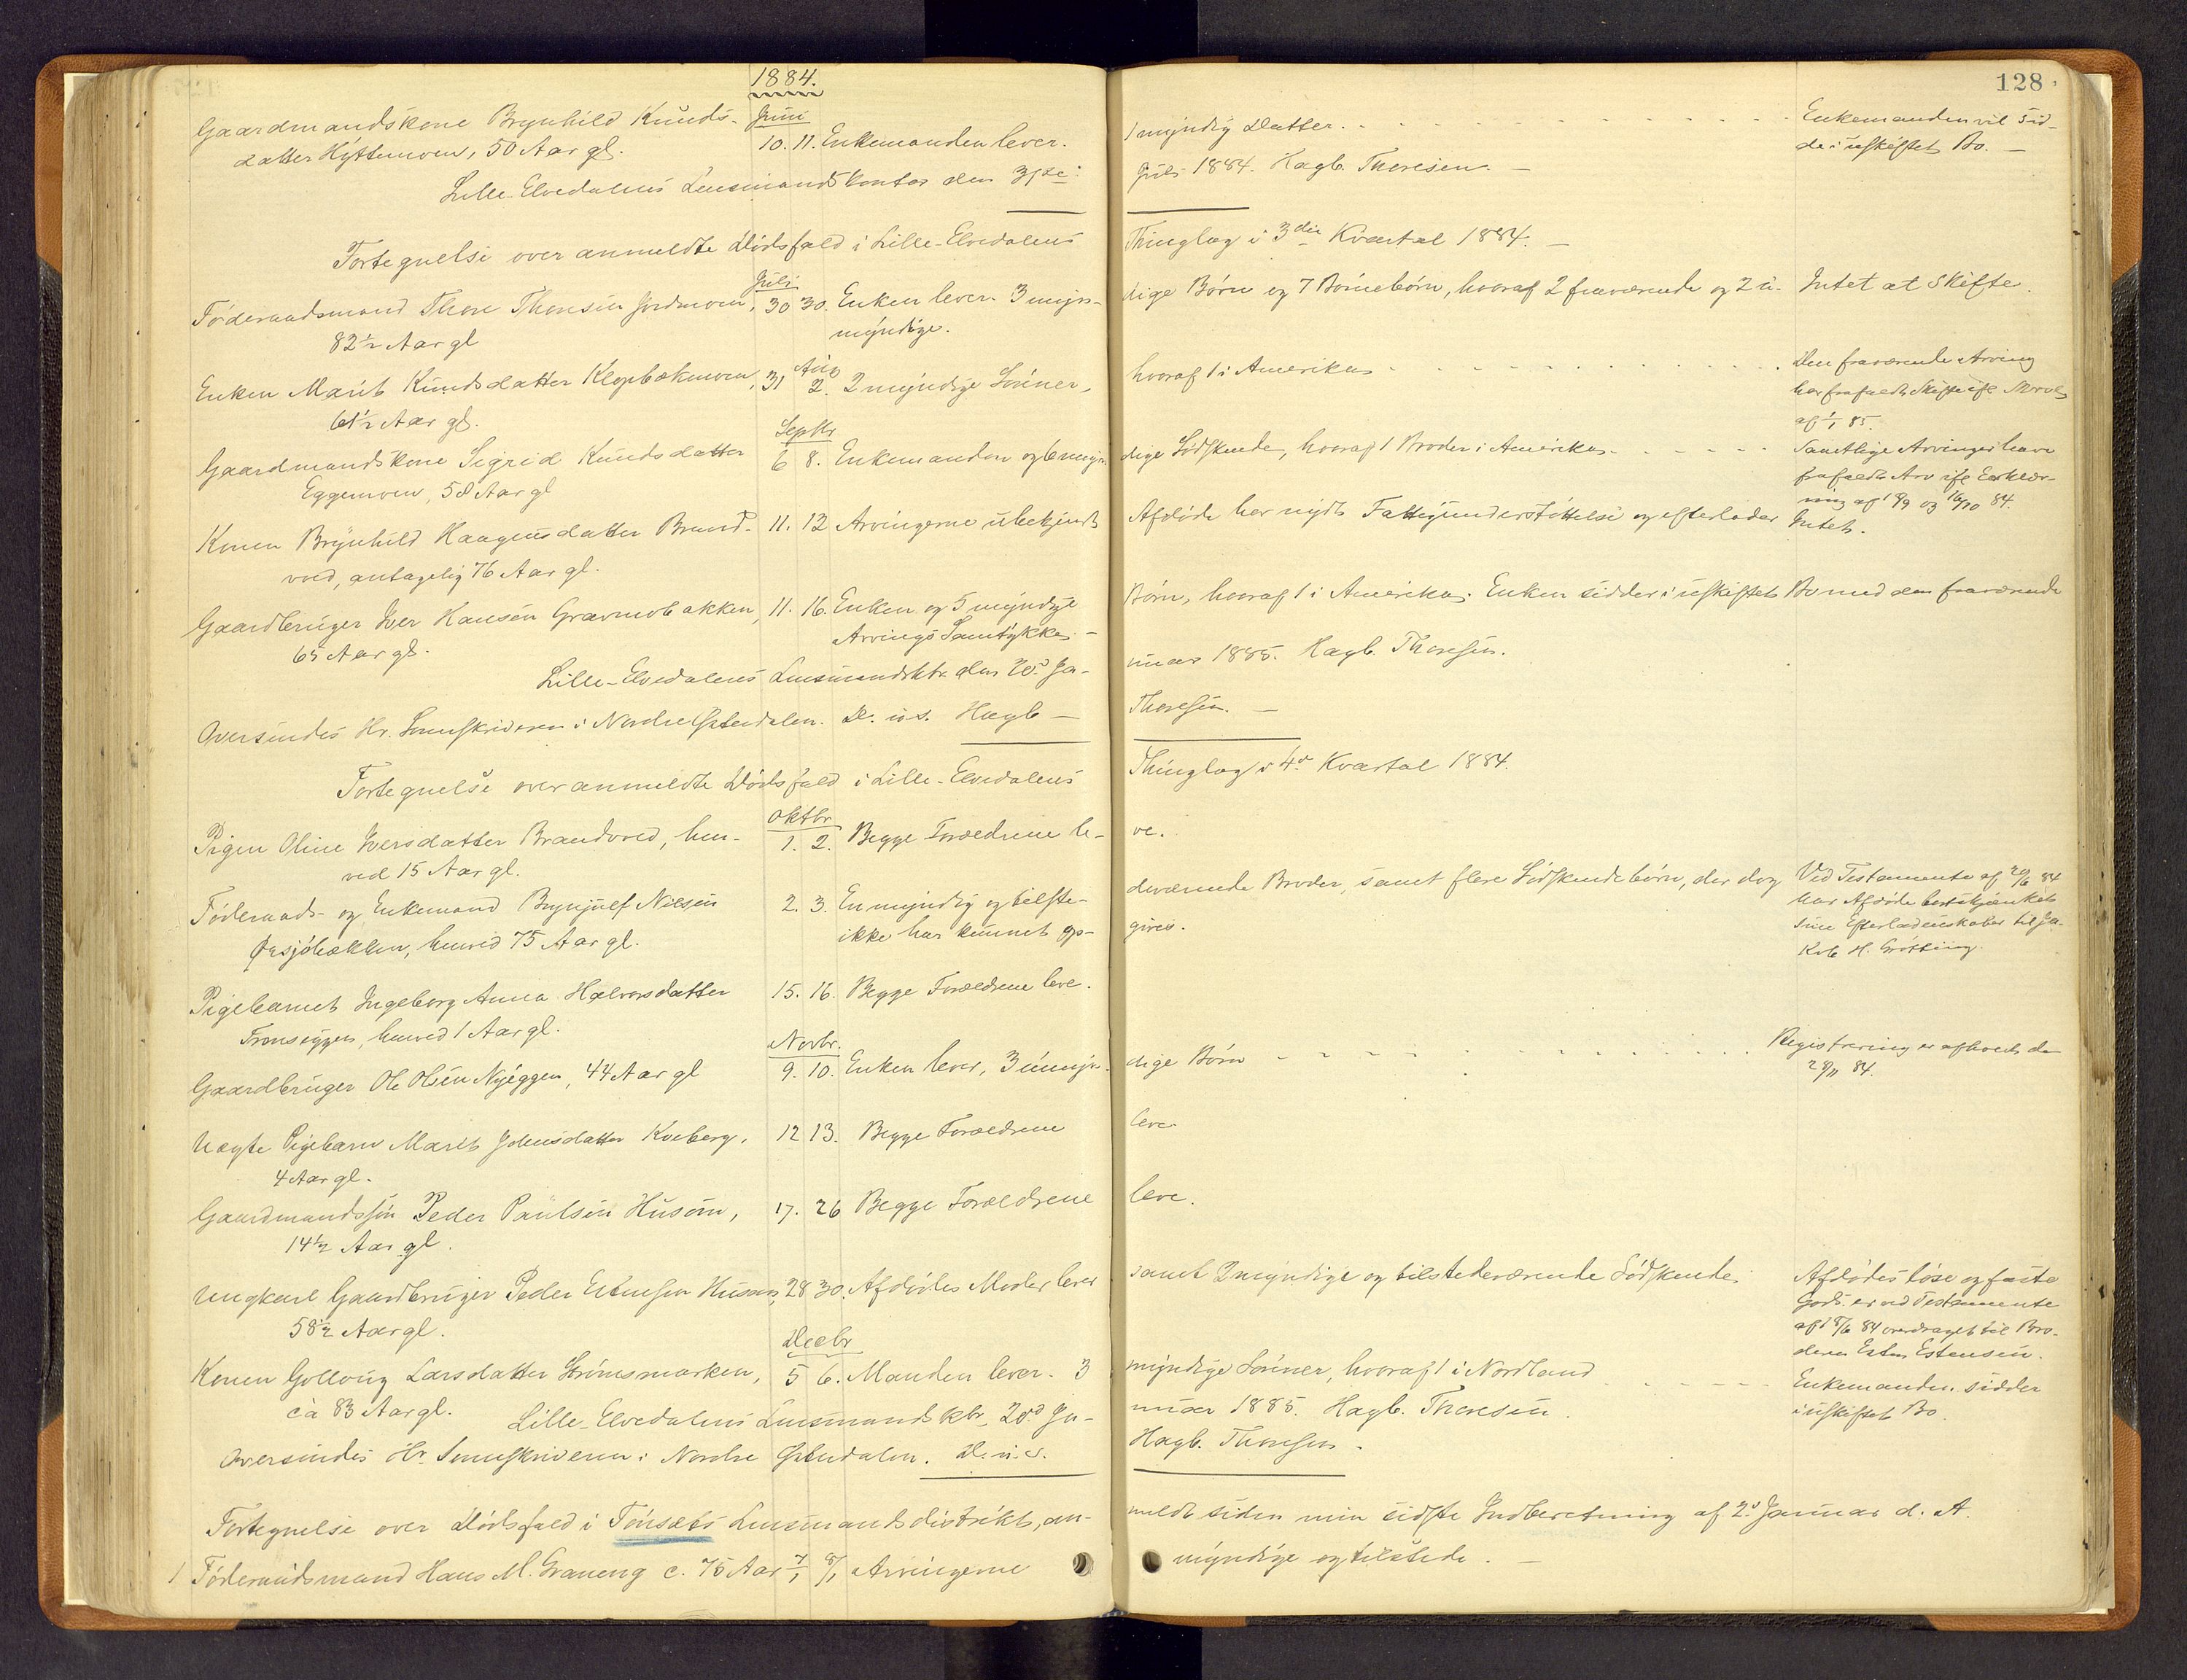 1884.
128
Gaardmandskone Brynhild Knuds-
datter Hyttemoen, 50 Aar gl.
Juni
10. 11. Enkemanden lever.
1 myndig Datter.
Enkemanden vil sid-
de i uskiftet Bo. —
Lille-Elvedalens Lensmandskontor den 31te
Juli 1884. Hagb. Thoresen. —
Fortegnelse over anmeldte Dödsfald i Lille-Elvedalens
Thinglag i 3die Kvartal 1884. —
Juli
Föderaadsmand Thore Thoresen Jordmoen, 30 30. Enken lever. 3 myn-
dige Börn og 7 Börnebörn, hvoraf 2 fraværende og 2 u-
Intet at Skifte.
82½ Aar gl
myndige.
Aug
Enken Marit Knudsdatter Klopbækmoen, 31 2. 2 myndige Sönner,
hvoraf 1 i Amerika
Den fraværende Arving
har frafaldt Skifte ifl.
af 1/1 85.
61½ Aar gl.
Septbr
Gaardmandskone Sigrid Knudsdatter 6 8. Enkemanden og 6 myn-
dige Södskende, hvoraf 1 Broder i Amerika.
Samtlige Arvinger have
frafaldt Arv ifl Erklær-
ing af 18/9 og 16/10 84.
Eggemoen, 58 Aar gl
Konen Brynhild Haagensdatter Brand- 11. 12 Arvingerne ubekjendt
Afdöde har nydt Fattigunderstöttelse og efterlader Intet.
vold, antagelig 76 Aar gl.
Gaardbruger Iver Hansen Gravmobakken, 11. 16. Enken og 5 myndige
Börn, hvoraf 1 i Amerika. Enken sidder i uskiftet Bo med den fraværende
65 Aar gl.
Arvings Samtykke. —
Lille-Elvedalens Lensmandsktr. den 20d Ja-
nuar 1885. Hagb. Thoresen.
Oversendes Hr. Sorenskriveren i Nordre Østerdalen. D. u. s. Hagb —
Thoresen. —
Fortegnelse over anmeldte Dödsfald i Lille-Elvedalens
Thinglag i 4de Kvartal 1884.
Oktbr
Pigen Oline Iversdatter Brandvold, hen- 1. 2. Begge Forældrene le-
ve.
ved 15 Aar gl.
Föderaads- og Enkemand Brynjulf Nilsen 2. 3. En myndig og tilste-
deværende Broder, samt flere Södskendebörn, der dog
Ved Testamente af 20/6 84
har Afdöde bortskjænket
sine Efterladenskaber til Ja-
kob H. Grötting.
Øksjöbækken, henved 75 Aar gl.
ikke har kunnet op-
gives.
Pigebarnet Ingeborg Anna Halvorsdatter 15. 16. Begge Forældrene leve.
Tronseggen, henved 1 Aar gl.
Novbr.
Gaardbruger Ole Olsen Nyeggen, 44 Aar gl 9. 10. Enken lever, 3 umyn-
dige Börn
Registrering er afholdt den
28/11 84.
Uægte Pigebarn Marit Johnsdatter Kveberg, 12 13. Begge Forældrene
leve.
4 Aar gl.
Gaardmandssön Peder Paulsen Husom, 17. 26 Begge Forældrene
leve.
14½ Aar gl.
Ungkarl Gaardbruger Peder Estensen Husom, 28 30. Afdödes Moder lever
samt 2 myndige og tilstedeværende Södskende.
Afdödes löse og faste
Gods er ved Testamente
af 18/6 84 overdraget til Bro-
deren Esten Estensen.
58½ Aar gl.
Decbr
Konen Gollaug Larsdatter Strömsmarken, 5 6. Manden lever. 3
myndige Sönner, hvoraf 1 i Nordland
Enkemanden sidder
i uskiftet Bo.
ca 83 Aar gl.
Lille-Elvedalens Lensmandsktr. 20d Ja-
nuar 1885. Hagb. Thoresen.
Oversendes Hr. Sorenskriveren i Nordre Østerdalen. D. u. s.
Hagb. Thoresen.
Fortegnelse over Dödsfald i Tönsets Lensmandsdistrikt, an-
meldt siden min sidste Indberetning af 2d Januar d. A.
1 Föderaadsmand Hans M. Graneng c. 75 Aar 7/1 8/1 Arvingerne
myndige og tilstede. —